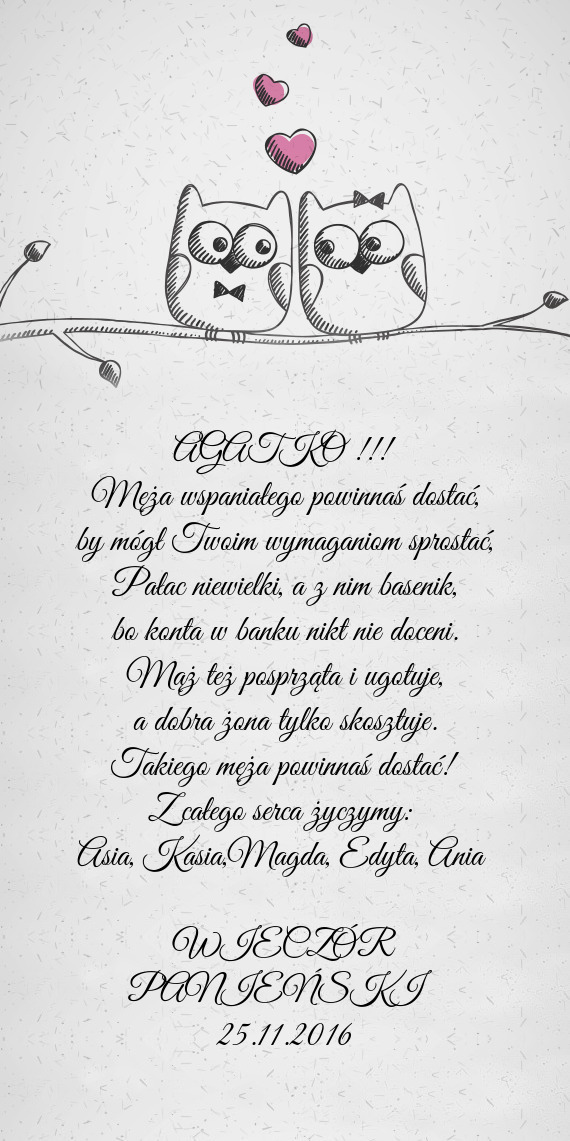 AGATKO !!!
Męża wspaniałego powinnaś dostać,
by mógł Twoim wymaganiom sprostać,
Pałac niewielki, a z nim basenik,
bo konta w banku nikt nie doceni.
Mąż też posprząta i ugotuje,
a dobra żona tylko skosztuje.
Takiego męża powinnaś dostać!
Zcałego serca życzymy:
Asia, Kasia,Magda, Edyta, Ania
WIECZÓR
PANIEŃSKI
25.11.2016